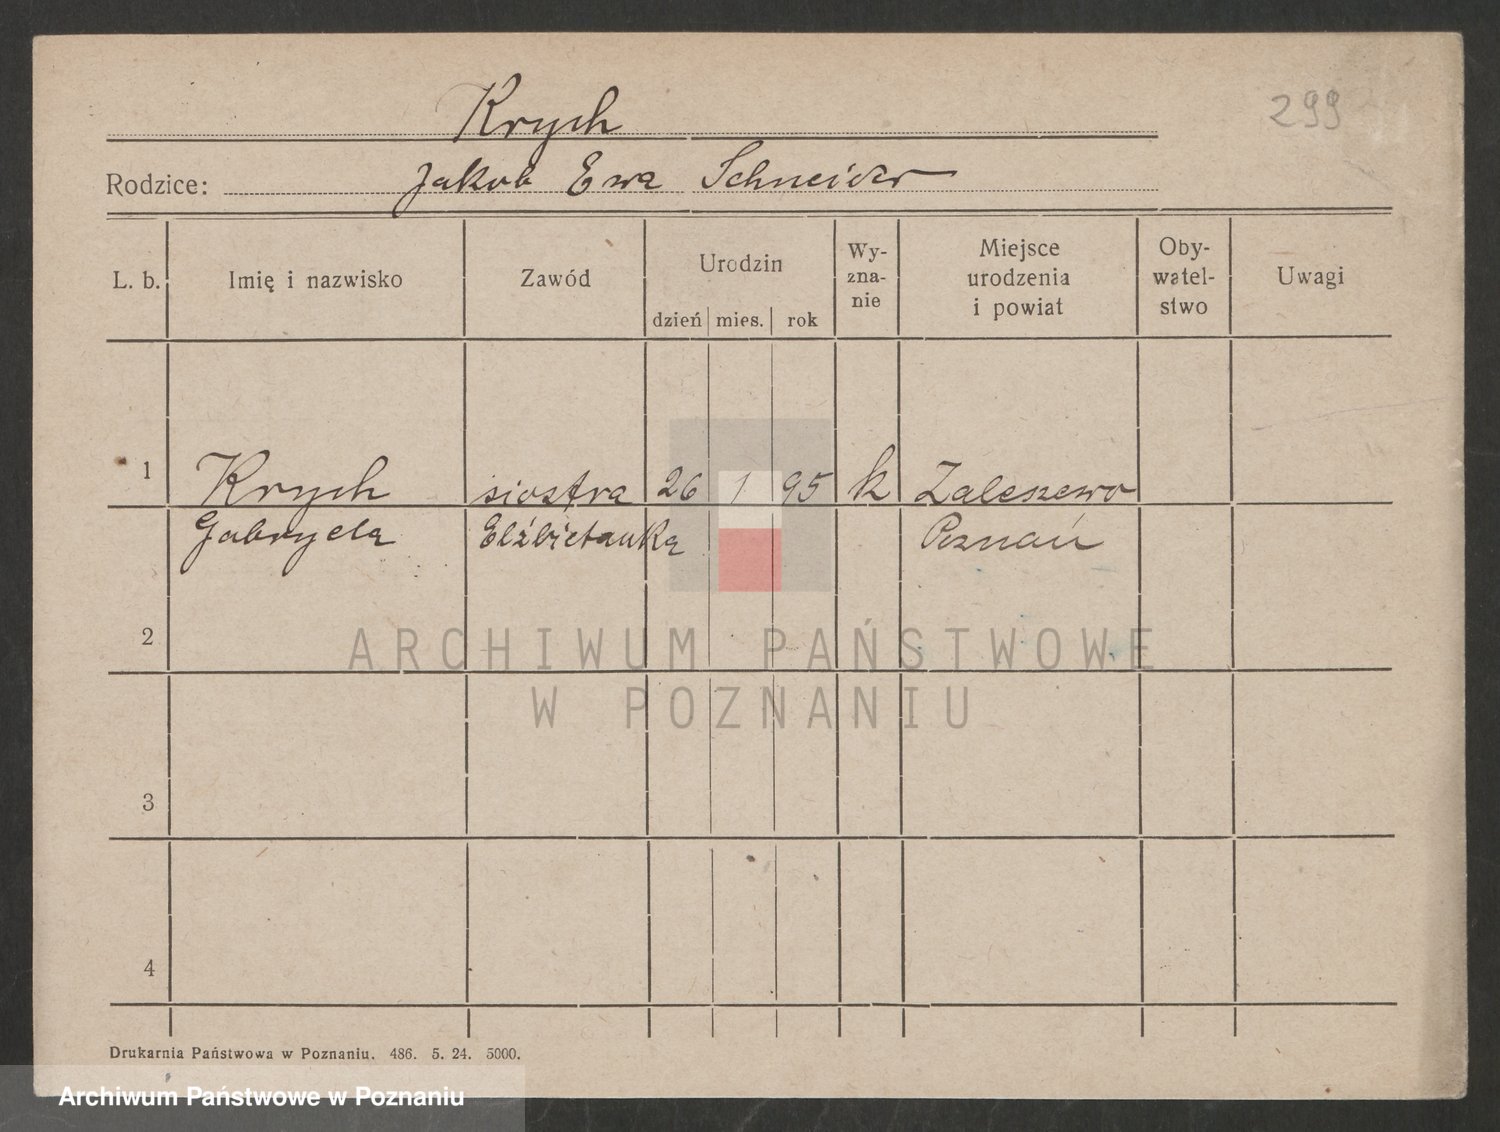 299
Krych
Rodzice: Jakob Ewa Schneider
L. b. Imię i nazwisko Zawód Urodzin dzień mies. rok Wy-zna-nie Miejsce urodzenia i powiat Oby-watel-stwo Uwagi
1 Krych siostra 26 1 95 k Zaleszewo
Gabryela Elżbietanka Poznań
2
3
4
ARCHIWUM PAŃSTWOWE
W POZNANIU
Drukarnia Państwowa w Poznaniu. 486. 5. 24. 5000.
Archiwum Państwowe w Poznaniu